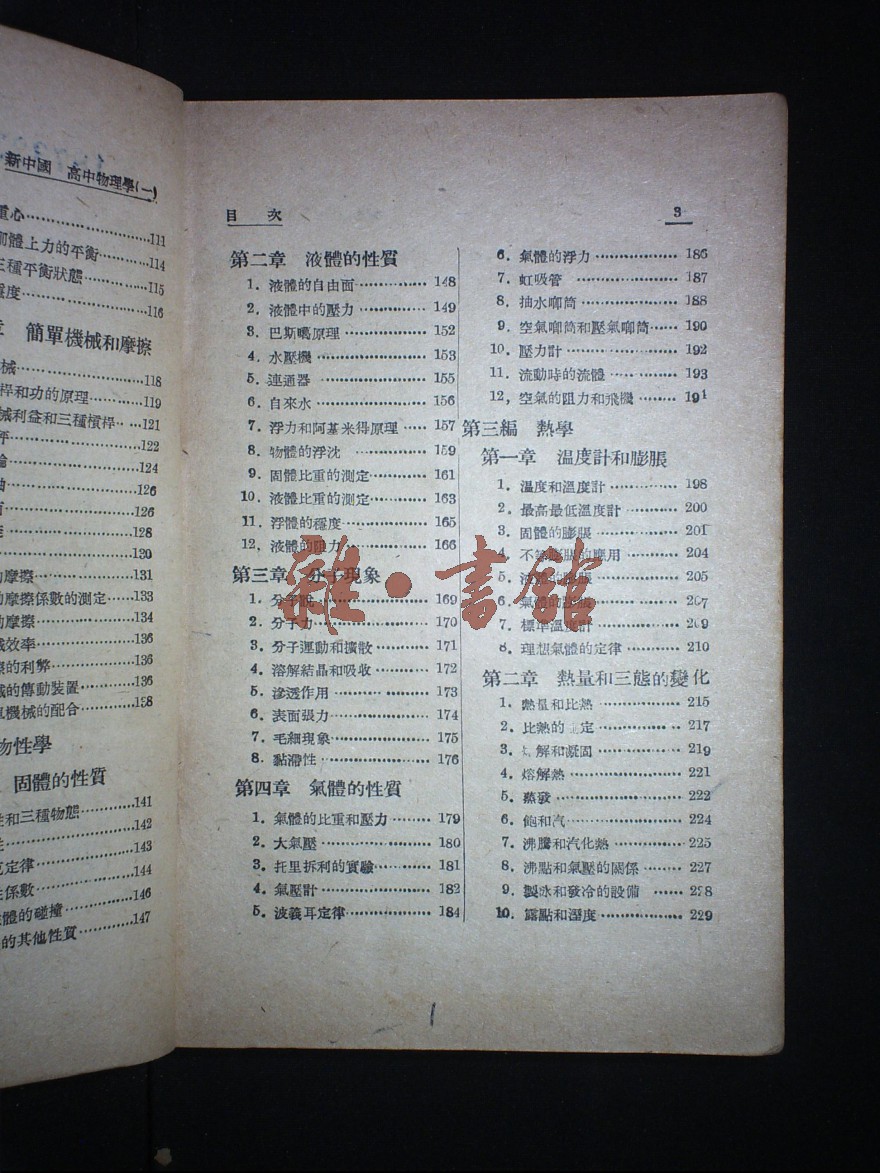 新中國 高中物理學(一)
重心……111
體上力的平衡……114
三種平衡狀態……115
穩度……116
簡單機械和摩擦
械……118
桿和功的原理……119
械利益和三種槓桿……121
……122
……124
……126
……126
……128
……130
摩擦……131
摩擦係數的測定……133
摩擦……134
效率……136
的利弊……136
的傳動裝置……136
單機械的配合……138
物性學
固體的性質
性和三種物態……141
性……142
定律……143
性係數……144
體的碰撞……146
的其他性質……147
目 次 3
第二章 液體的性質
1. 液體的自由面……148
2. 液體中的壓力……149
3. 巴斯噶原理……152
4. 水壓機……153
5. 連通器……155
6. 自來水……156
7. 浮力和阿基米得原理……157
8. 物體的浮沈……159
9. 固體比重的測定……161
10. 液體比重的測定……163
11. 浮體的穩度……165
12. 液體的阻力……166
第三章 分子現象
1. 分子說……169
2. 分子力……170
3. 分子運動和擴散……171
4. 溶解結晶和吸收……172
5. 滲透作用……173
6. 表面張力……174
7. 毛細現象……175
8. 黏滯性……176
第四章 氣體的性質
1. 氣體的比重和壓力……179
2. 大氣壓……180
3. 托里拆利的實驗……181
4. 氣壓計……182
5. 波義耳定律……184
6. 氣體的浮力……186
7. 虹吸管……187
8. 抽水唧筒……188
9. 空氣唧筒和壓氣唧筒……190
10. 壓力計……192
11. 流動時的流體……193
12. 空氣的阻力和飛機……194
第三編 熱學
第一章 溫度計和膨脹
1. 溫度和溫度計……198
2. 最高最低溫度計……200
3. 固體的膨脹……201
4. 不等膨脹的應用……204
5. 液體的膨脹……205
6. 氣體的膨脹……207
7. 標準溫度計……209
8. 理想氣體的定律……210
第二章 熱量和三態的變化
1. 熱量和比熱……215
2. 比熱的測定……217
3. 熔解和凝固……219
4. 熔解熱……221
5. 蒸發……222
6. 飽和汽……224
7. 沸騰和汽化熱……225
8. 沸點和氣壓的關係……227
9. 製冰和發冷的設備……228
10. 露點和溼度……229
雜·書館
1